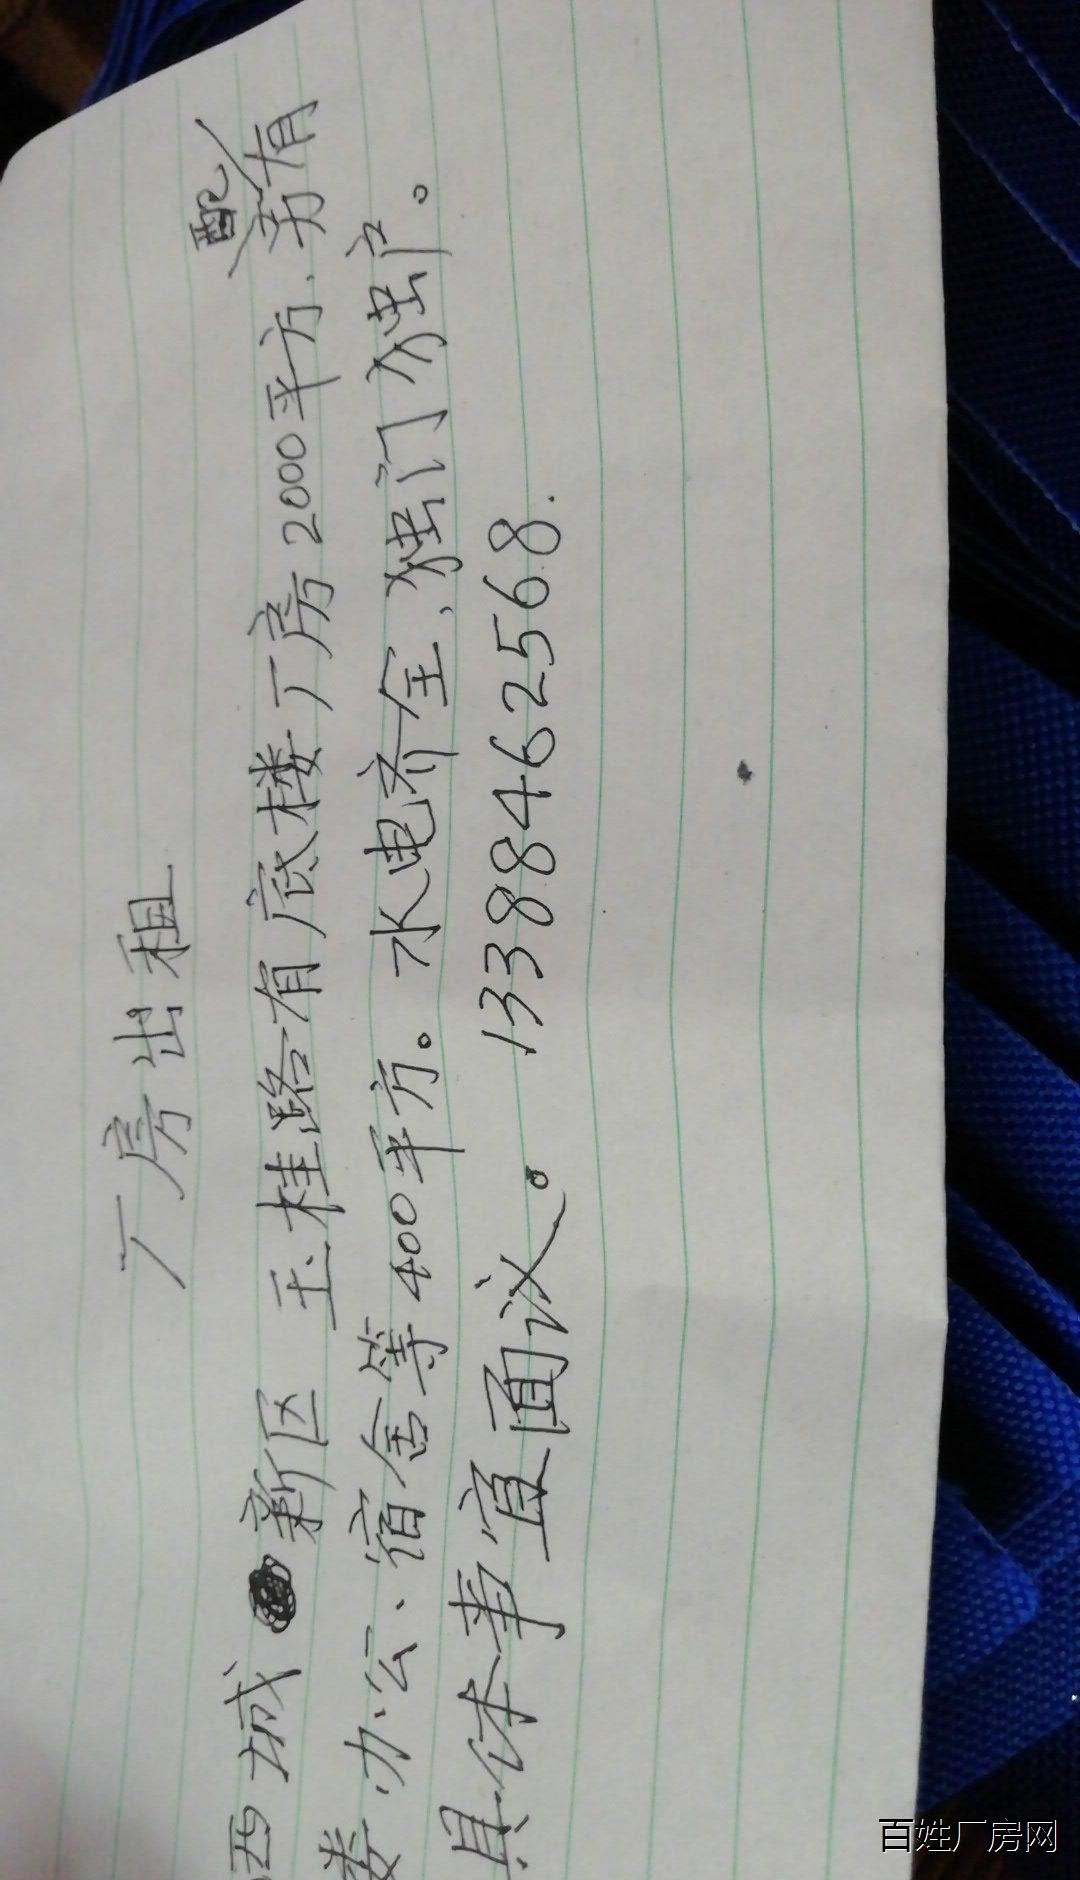 厂房出租
西城新区 玉桂路有底楼厂房2000平方.另有配
楼办公、宿舍等400平方。水电齐全.独门独户。
具体事宜面议。 13388462568.
百姓厂房网